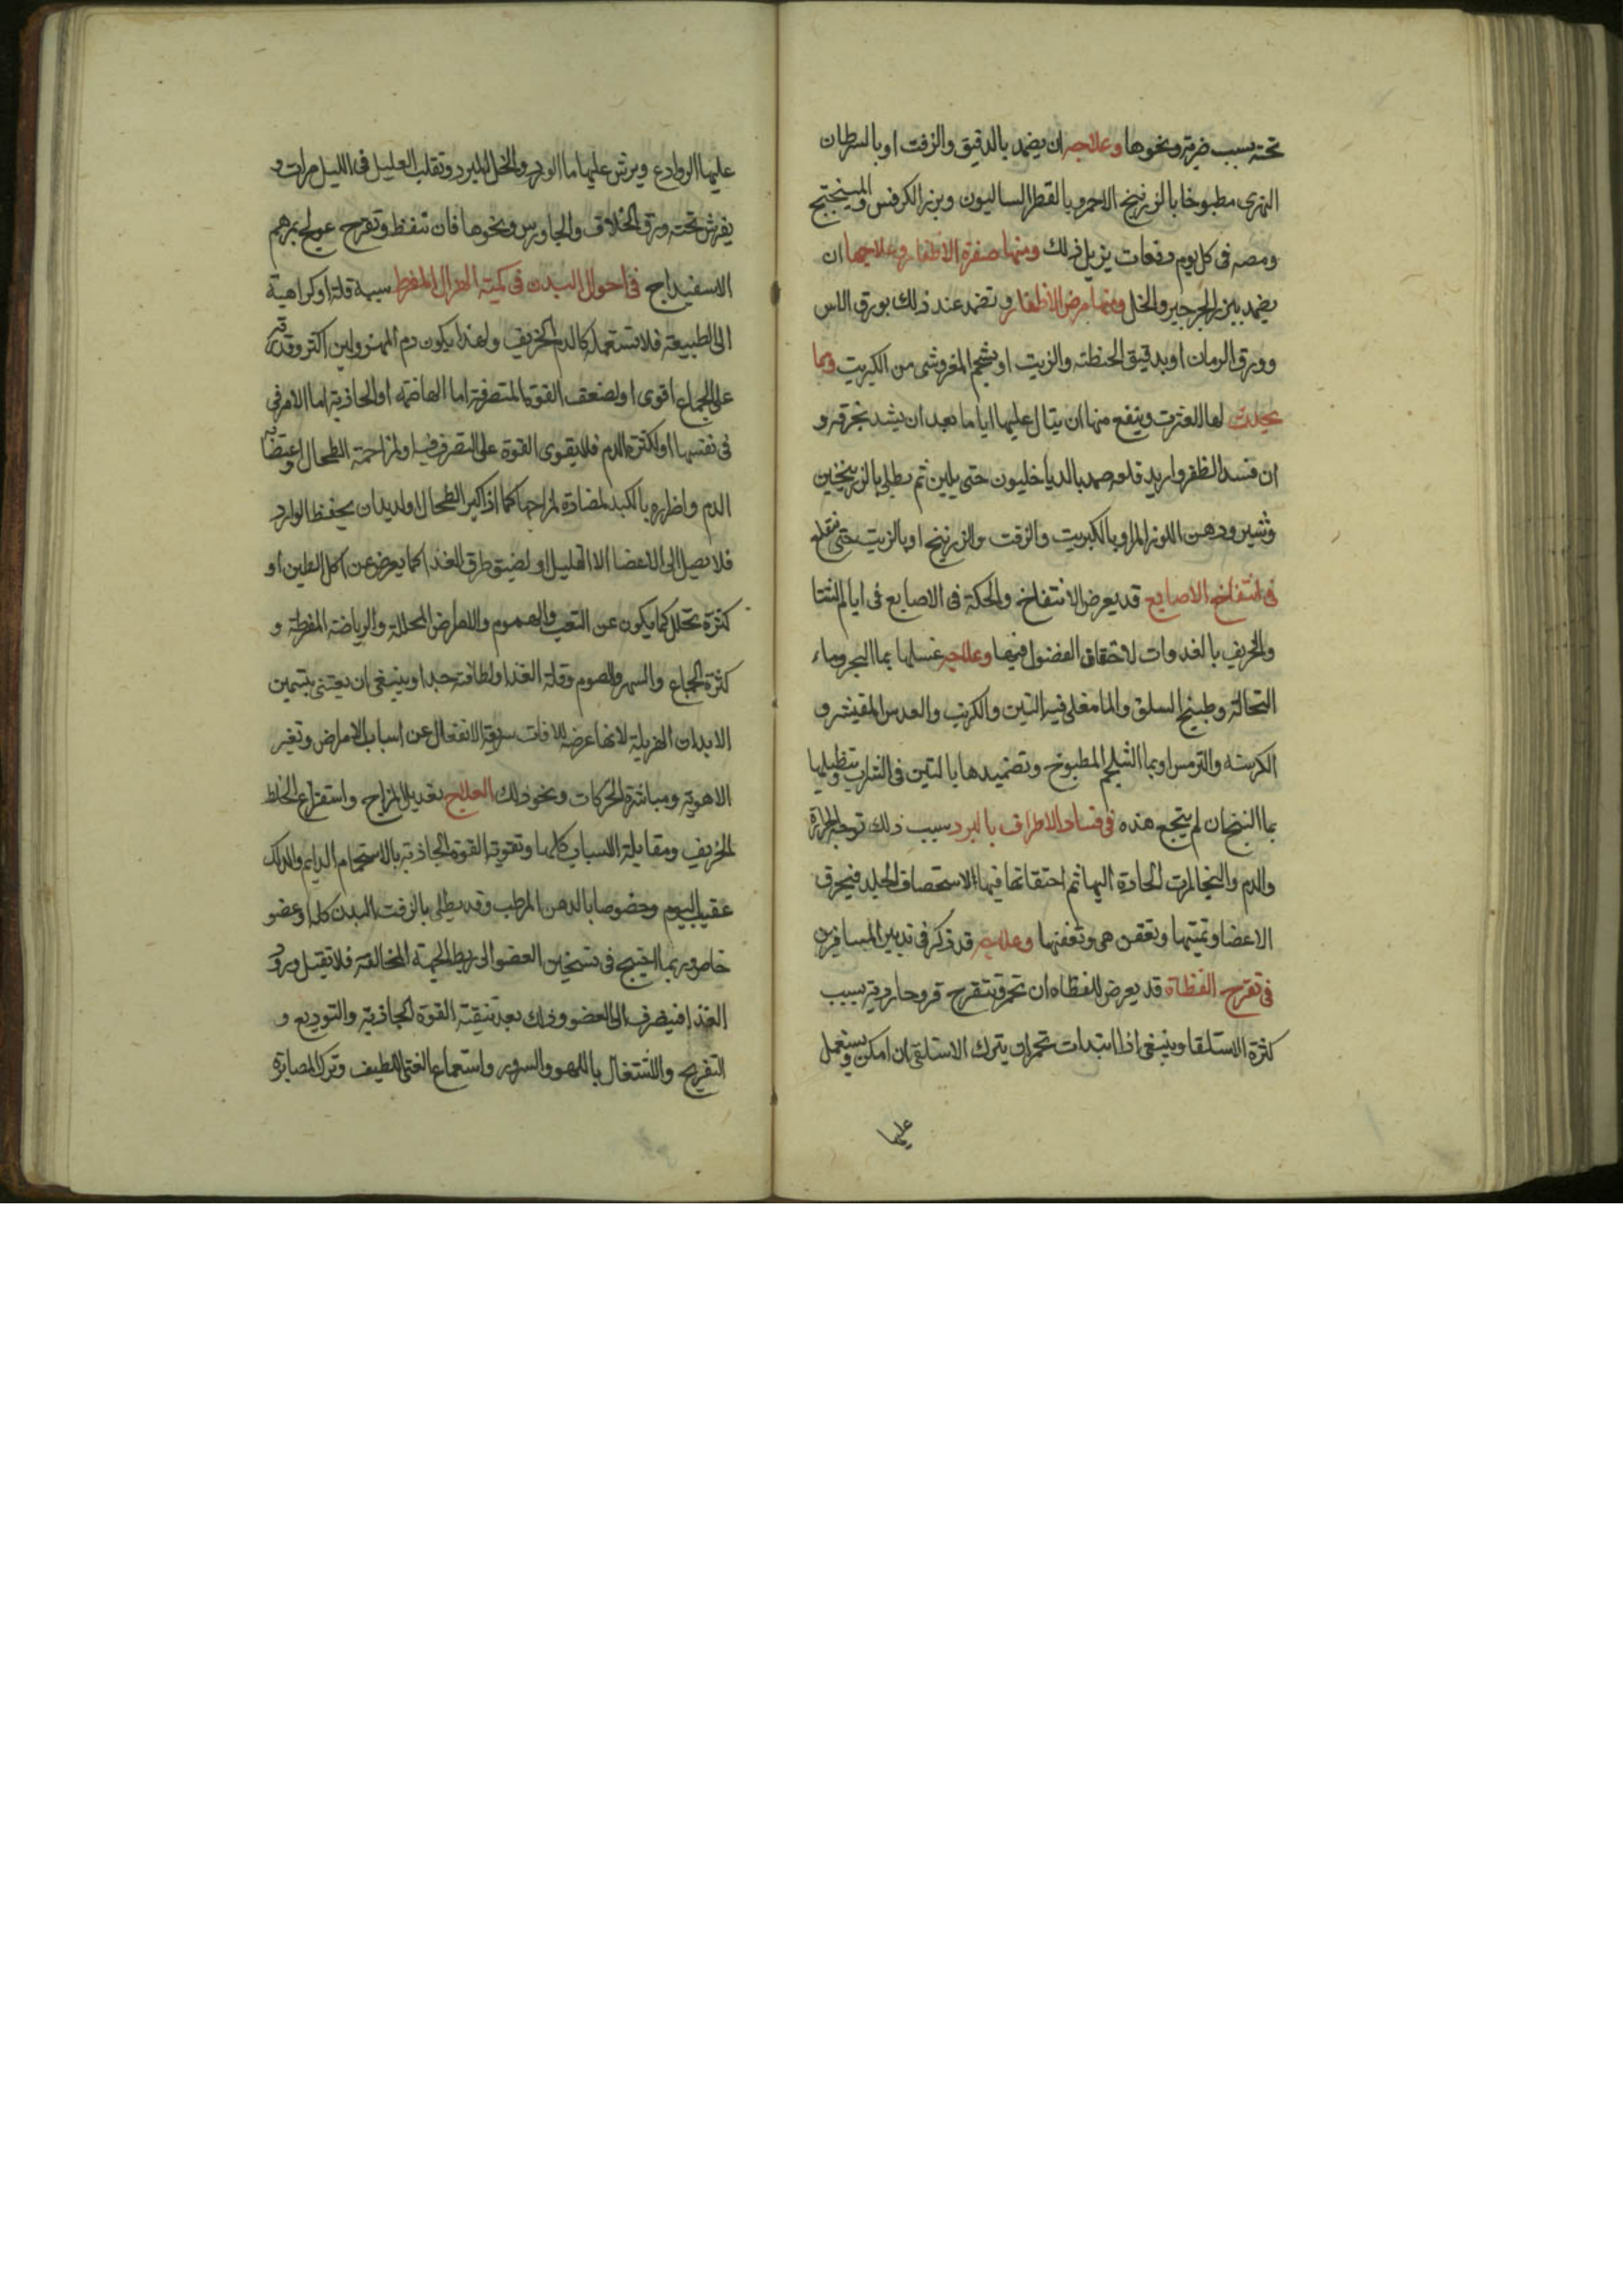 تحته بسبب ضربة ونحوها وعلاجه ان يضمد بالدقيق والزفت او بالسرطان
النهرى مطبوخا بالزرنيخ الاحمر وبالقطر الساليون وبزر الكرفس والميبختج
ومصه فى كل يوم دفعات يزيل ذلك ومنها صفرة الاظفار وعلاجها ان
يضمد ببزر الجرجير والخل ومنها مرض الاظفار وتضمد عند ذلك بورق الاس
وورق الرمان او بدقيق الحنطة والزيت او بشحم المغر وشى من الكبريت ومما
يحدث لها العثرت وينفع منها ان يبال عليها اياما بعد ان يشد بخرقة و
ان فسد الظفر واريد قلعه ضمد بالدياخليون حتى يلين ثم يطلى بالزرنيخين
ودهن اللوز المر او بالكبريت والزفت والزرنيخ او بالزيت حتى تقلع
فى انتفاخ الاصابع قد يعرض الانتفاخ والحكة فى الاصابع فى ايام الشتا
والخريف بالغدوات لاحتقان الفضول فيها وعلاجه غسلها بما البحر وماء
النخالة وطبيخ السلق والما مغلى فيه التين والكرنب والعدس المقشر و
الكرسنه والترمس او بما الشلجم المطبوخ وتضميدها بالتين فى الشراب وتنطيلها
بما البنج ان لم ينجع هذه فى فساد الاطراف بالبرد سبب ذلك توجه الحرارة
والدم والبخارات الحادة اليها ثم احتقانها فيها لاستحصاف الجلد فيحرق
الاعضا وتميتها وتعفن هى وتعفنها وعلاجه قد ذكر فى تدبير المسافرين
فى تقرح القطاة قد يعرض للقطاة ان تحمر وتتقرح قروحا ردية بسبب
كثرة الاستلقا وينبغى اذا ابتدات تحمر ان يترك الاستلقى ان امكن ويستعمل
عليها
عليها الروادع ويرش عليها ما الورد والخل المبرد وتقلب العليل فى الليل مرات و
يفرش تحته ورق الخلاف والجاورس ونحوها فان تنفط وتقرح عولج بمرهم
الاسفيداج فى احوال البدن فى كميته الهزال المفرط سببه قلة او كراهية
الى الطبيعة فلا تستعمله كالدم الحريف ولهذا يكون دم المهزولين اكثر وقدرته
على الجماع اقوى او لضعف القوة المتصرفة اما الهاضمه او الجاذبة اما لامر فى
فى نفسها او لكثرة الدم فلا يقوى القوة على التصرف فيه او لمزاحمة الطحال
الدم واضراره بالكبد لمضادة لمزاجها كما اذا كبر الطحال او لديدان يحفظ الوارد
فلا يصل الى الاعضا الا القليل او لضيق طرق الغذا كما يعرض عن اكل الطين او
كثرة تحلل كما يكون عن التعب والهموم والامراض المحللة والرياضة المفرطة و
كثرة الجماع والسهر والصوم وقلة الغذا ولطافته جدا وينبغى ان يعتنى بتسمين
الابدان الهزيلة لانها عرضة للافات سريعة الانفعال عن اسباب الامراض وتغير
الاهوية ومباشرة الحركات ونحو ذلك العلاج تعديل المزاج واستفراغ الخلط
الحريف ومقابلة الاسباب كلها وتقوية القوة الجاذبة بالاستحمام الدايم والدلك
عقيب النوم وخصوصا بالدهن المرطب وقد يطلى بالزفت البدن كله او عضو
خاص وربما احتيج فى تسخين العضو الى ربط الجهة المخالفة فلا تقبل ورود
الغذا فينصرف الى العضو وذلك بعد تنقية القوة الجاذبة والتوديع و
التفريح والاشتغال باللهو والسرور واستماع الغنى اللطيف وترك المصابرة